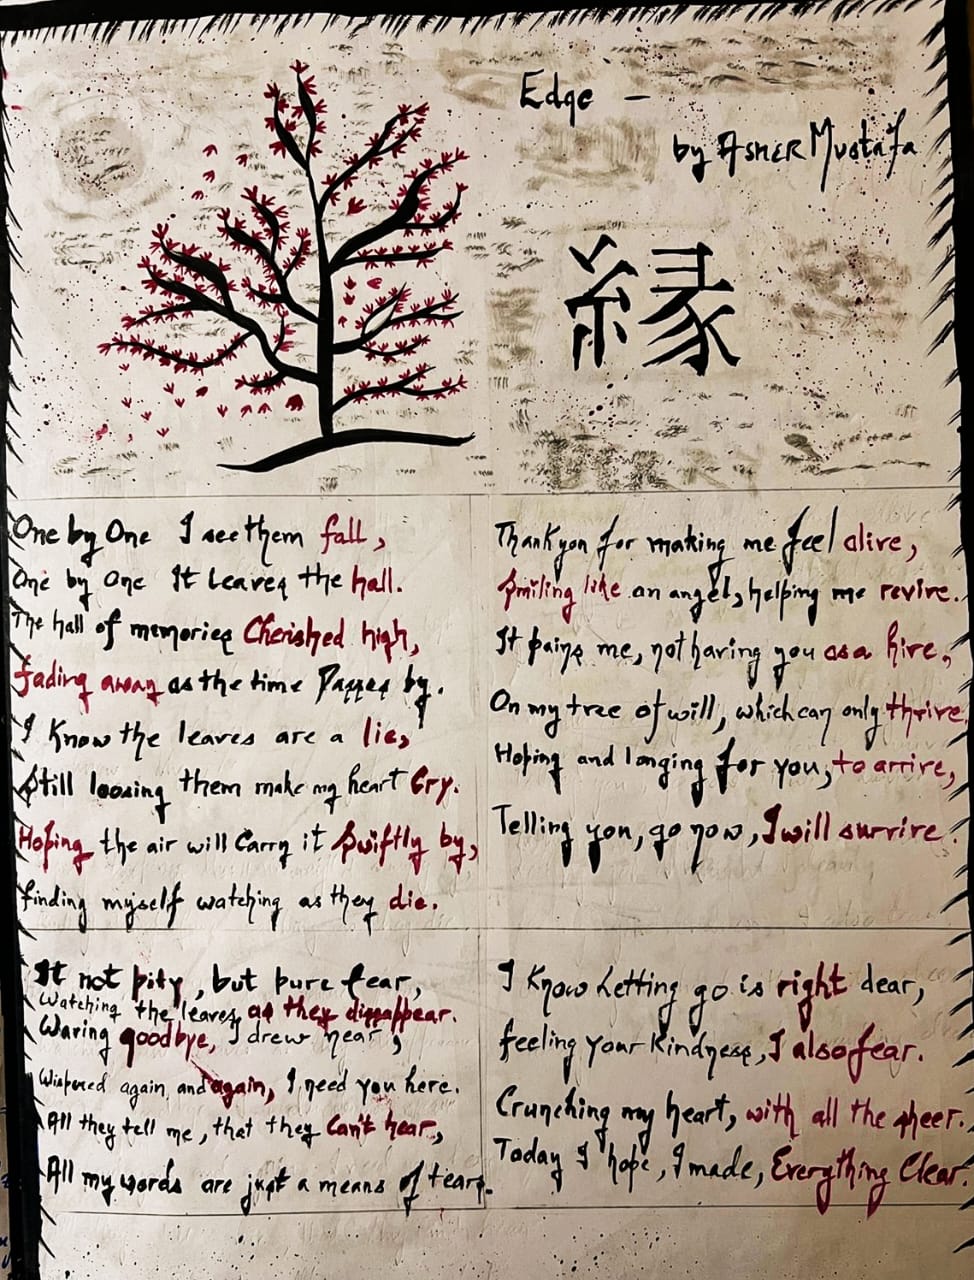 Edge -
by Asher Mustafa
縁
One by One I see them fall,
One by one It leaves the hall.
The hall of memories Cherished high,
fading away as the time Passes by.
I Know the leaves are a lie,
Still loosing them make my heart Cry.
Hoping the air will Carry it Swiftly by,
finding myself watching as they die.
Thankyou for making me feel alive,
Smiling like an angel, helping me revive.
It pains me, not having you as a hive,
On my tree of will, which can only thrive,
Hoping and longing for you, to arrive,
Telling you, go now, I will survive.
It not pity, but pure fear,
Watching the leaves, as they dissappear.
Waving goodbye, I drew near,
Wispered again and again, I need you here.
All they tell me, that they Can't hear,
All my words are just a means of tears.
I Know Letting go is right dear,
feeling your Kindness, I also fear.
Crunching my heart, with all the sheer.
Today I hope, I made, Everything Clear.